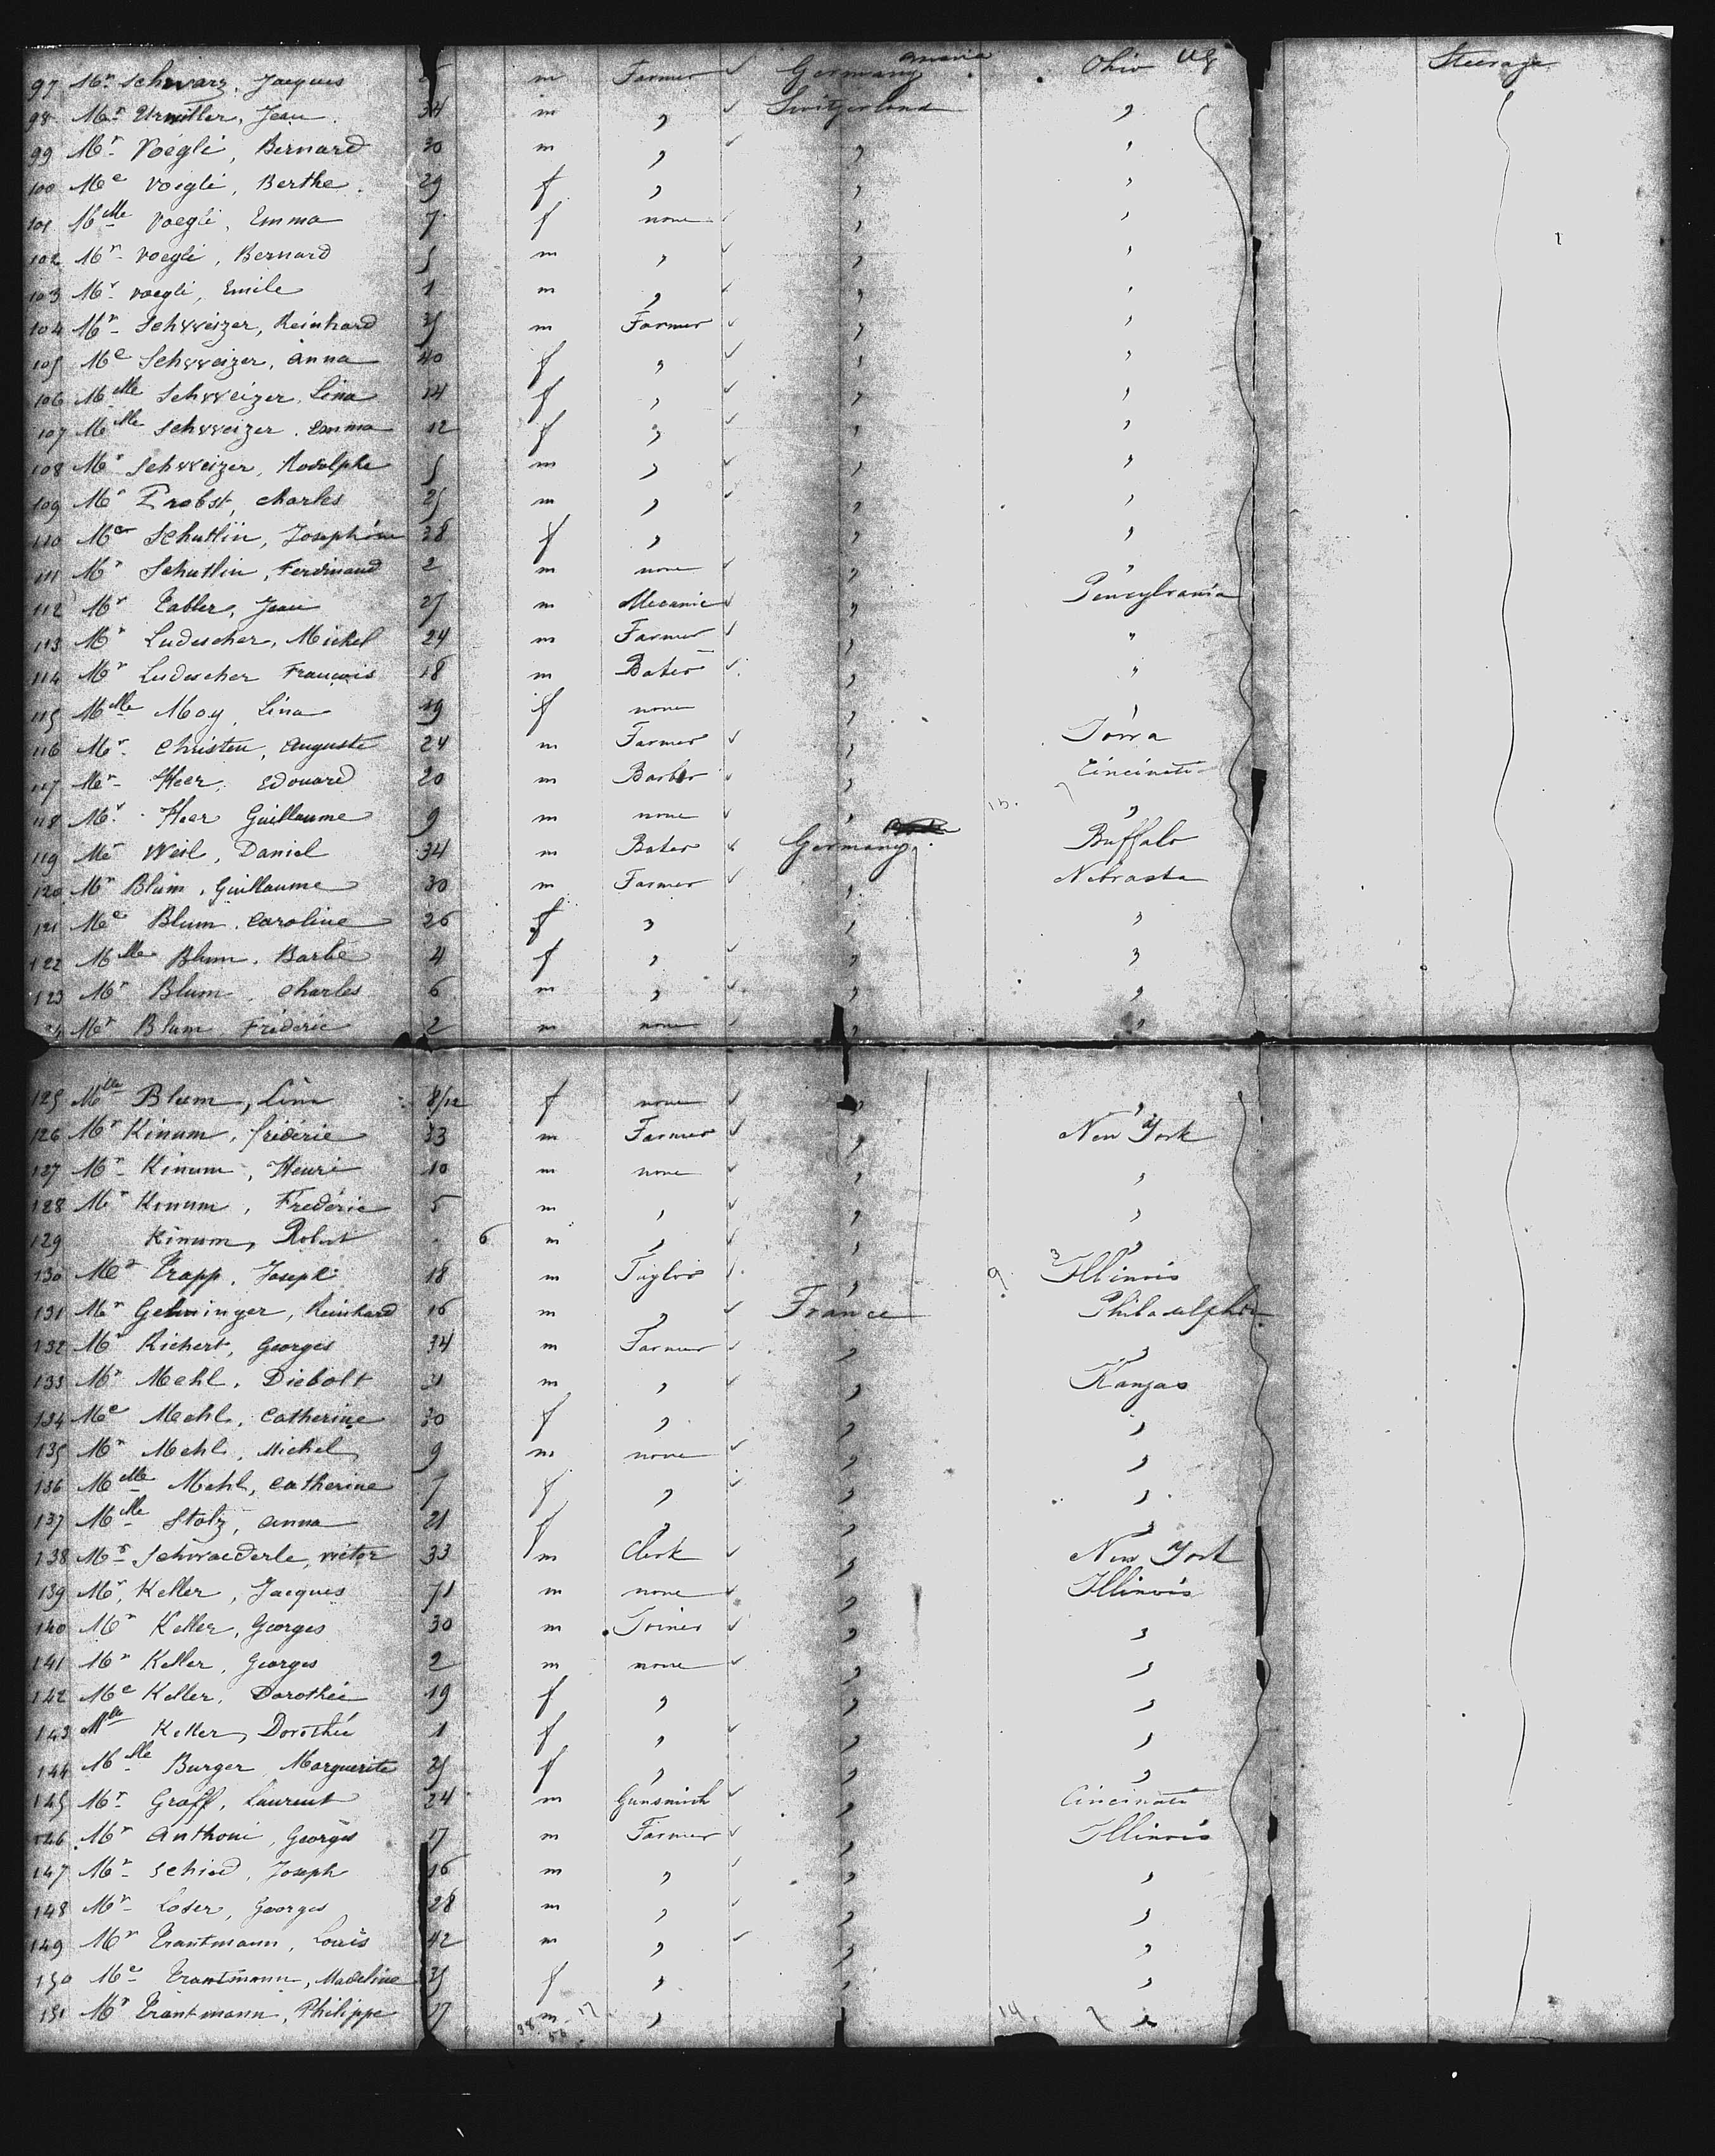 97 Mr Schwarz, Jacques m Farmer ✓ Germany Ohio US Steerage
98 Mr Urmitler, Jean 34 m " ✓ Switzerland "
99 Mr Voegli, Bernard 30 m " ✓ " "
100 Me Voegli, Berthe 29 f " " "
101 Mlle Voegli, Emma 7 f none ✓ " "
102 Mr Voegli, Bernard 5 m " ✓ " "
103 Mr Voegli, Emile 1 m " ✓ " "
104 Mr Schweizer, Reinhard 35 m Farmer ✓ " "
105 Me Schweizer, Anna 40 f " ✓ " "
106 Mlle Schweizer, Lina 14 f " ✓ " "
107 Mlle Schweizer, Emma 12 f " ✓ " "
108 Mr Schweizer, Rodolphe 5 m " ✓ " "
109 Mr Probst, Charles 25 m " ✓ " "
110 Me Schutlin, Josephine 38 f " " "
111 Mr Schutlin, Ferdinand 2 m none ✓ " "
112 Mr Tabler, Jean 27 m Mecanic ✓ " Pensylvania
113 Mr Ludescher, Michel 24 m Farmer ✓ " "
114 Mr Ludescher François 18 m Baker ✓ " "
115 Mlle Moy, Lina 19 f none " "
116 Mr Christen, Auguste 24 m Farmer ✓ " Iowa
117 Mr Heer, Edouard 20 m Barber ✓ " Cincinati
118 Mr Heer Guillaume 9 m none ✓ " "
119 Mr Weil, Daniel 34 m Baker ✓ Germany Buffalo
120 Mr Blum, Guillaume 30 m Farmer ✓ " Nebraska
121 Me Blum, Caroline 26 f " " "
122 Mlle Blum, Barbe 4 f " ✓ " "
123 Mr Blum, Charles 6 m " ✓ " "
Mr Blum Fréderic 2 m none ✓ " "
125 Mlle Blum, Lina 8/12 f none ✓ " "
126 Mr Kinum, fréderic 33 m Farmer ✓ " New York
127 Mr Kinum, Henri 10 m none ✓ " "
128 Mr Kinum, Frederic 5 m " ✓ " "
129 Kinum, Robert 6 m " ✓ " "
130 Mr Trapp, Joseph 18 m Taylor ✓ " Illinois
131 Mr Gehninger, Reinhard 16 m " ✓ France Philadelphia
132 Mr Richert, Georges 34 m Farmer ✓ " "
133 Mr Mehl, Diebolt 31 m " ✓ " Kanzas
134 Me Mehl, Catherine 30 f " " "
135 Mr Mehl, Michel 9 m none ✓ " "
136 Mlle Mehl, Catherine 7 f " ✓ " "
137 Mlle Stolz, Anna 21 f " " "
138 Mr Schwaederle, victor 33 m Clerk ✓ " New York
139 Mr Keller, Jacques 71 m none ✓ " Illinois
140 Mr Keller, Georges 30 m Joiner ✓ " "
141 Mr Keller, Georges 2 m none ✓ " "
142 Me Keller, Dorothée 19 f " " "
143 Mlle Keller, Dorothée 1 f " ✓ " "
144 Mlle Burger, Marguerite 25 f " " "
145 Mr Graff, Laurent 24 m Gunsmith ✓ " Cincinati
146 Mr Anthoni, Georges 17 m Farmer ✓ " Illinois
147 Mr Schied, Joseph 16 m " ✓ " "
148 Mr Loser, Georges 28 m " ✓ " "
149 Mr Trautmann, Louis 42 m " ✓ " "
150 Me Trautmann, Madeline 35 f " " "
151 Mr Trautmann, Philippe 17 m " " "